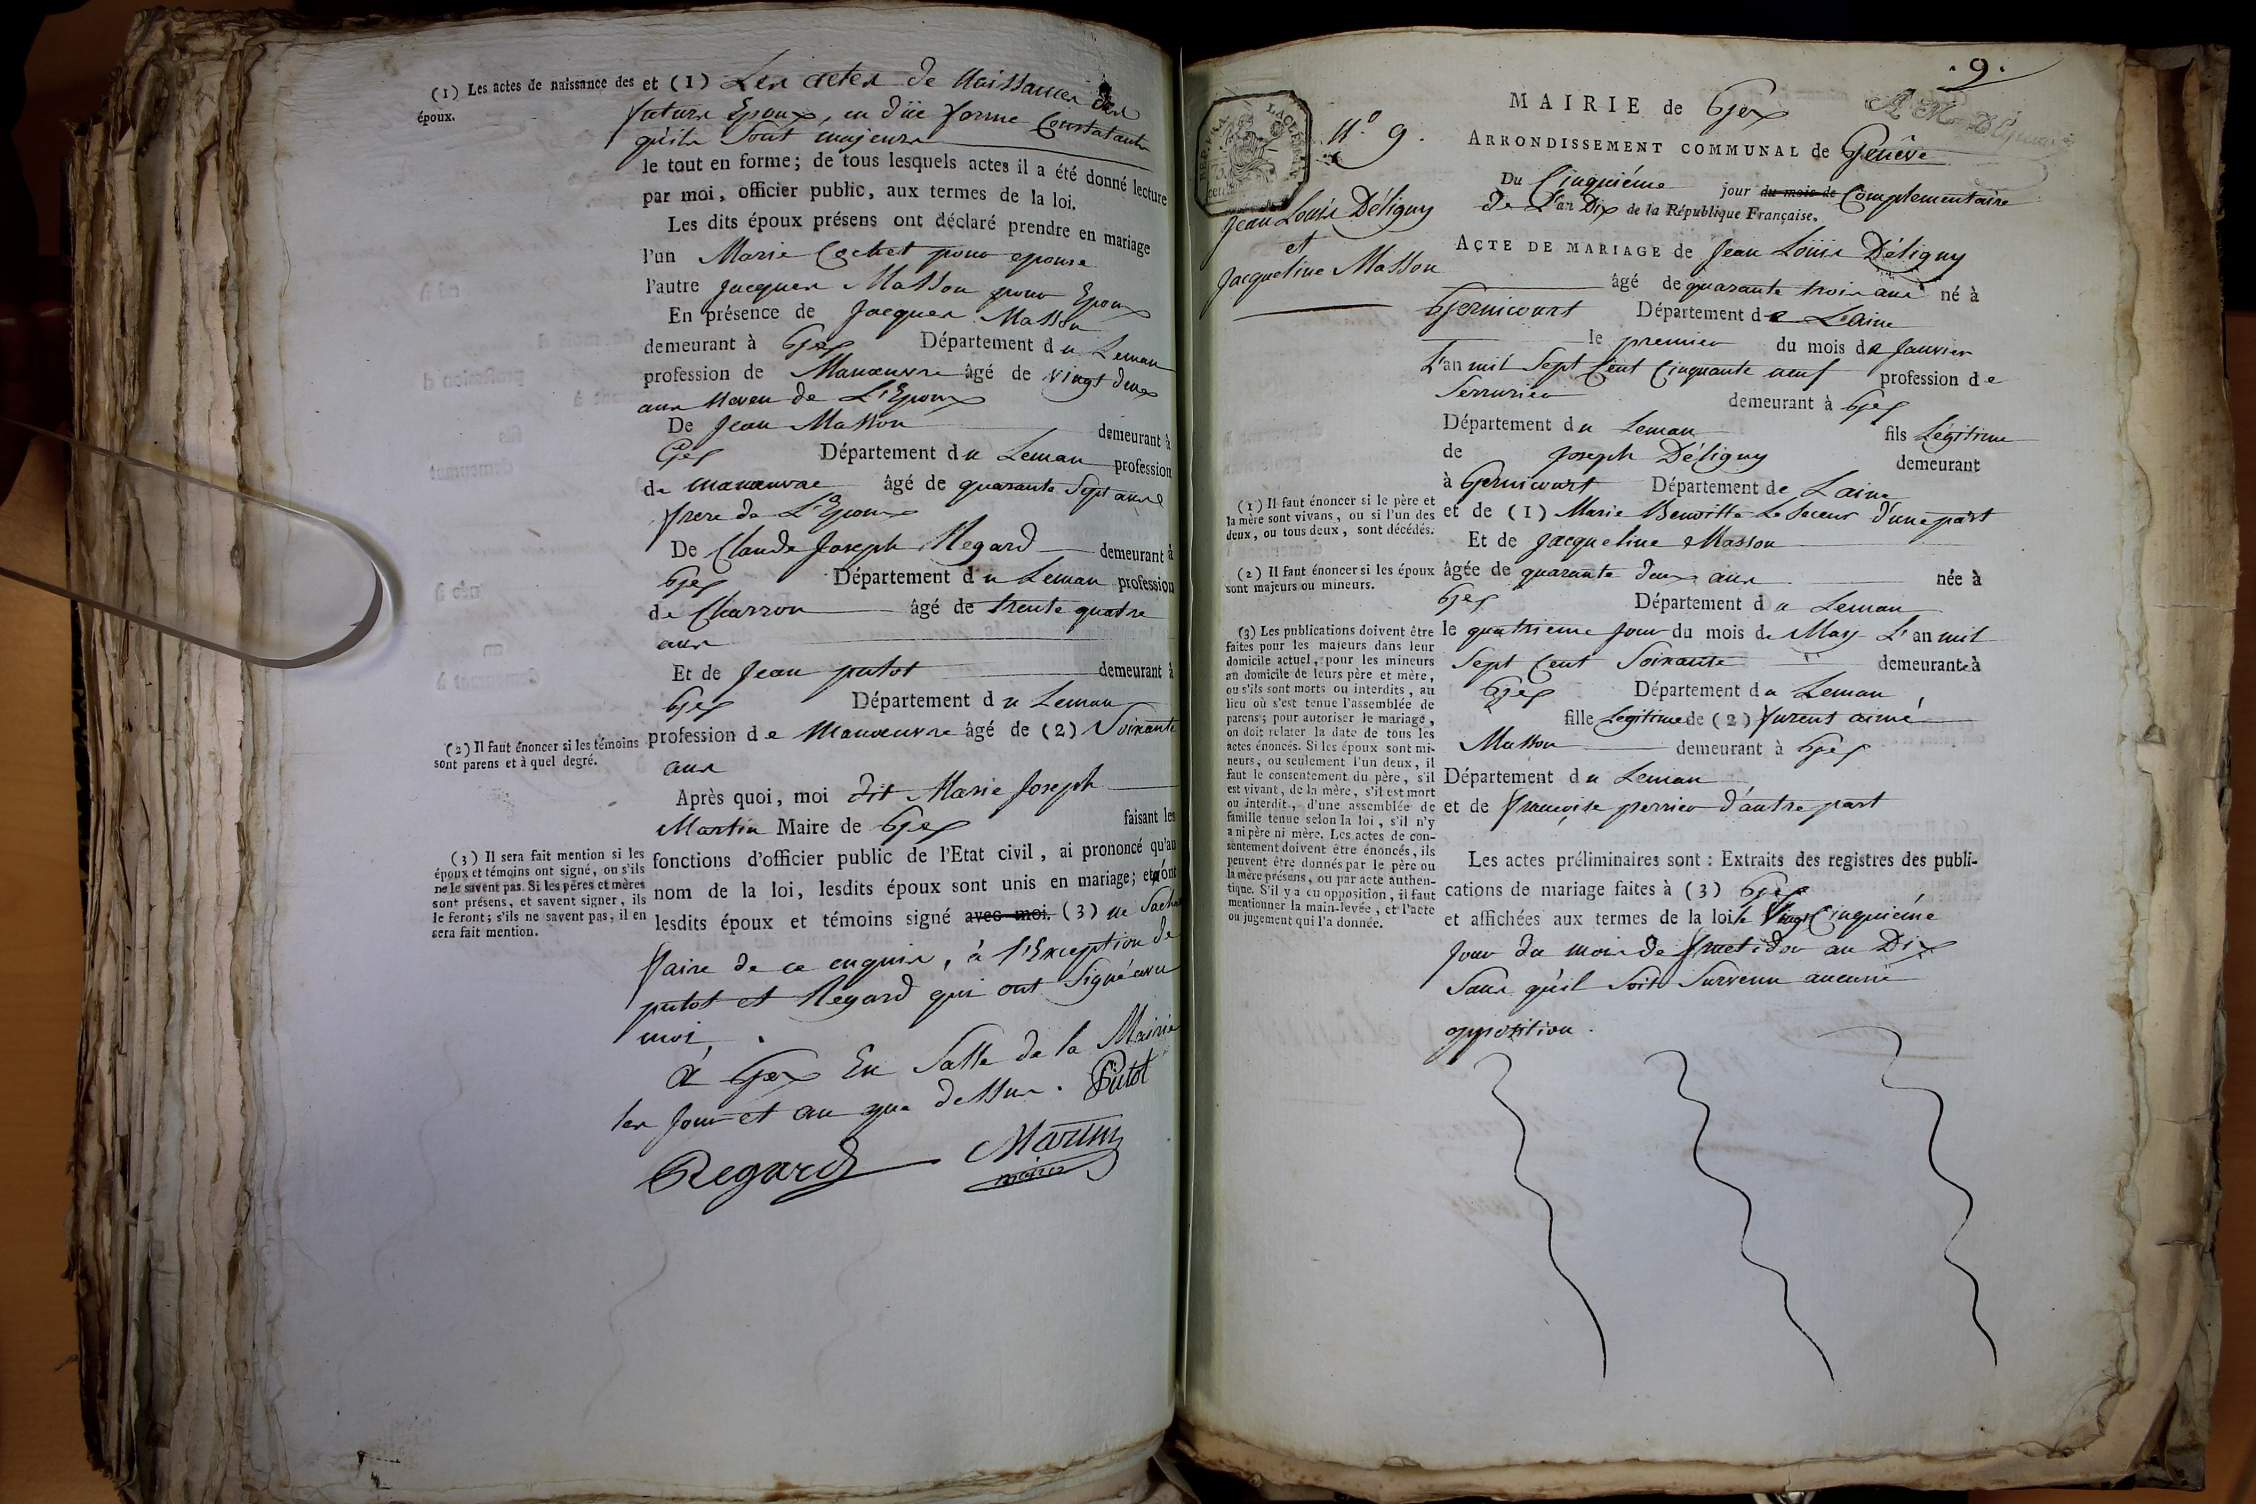 (1) Les actes de naissance des
époux.
et (1) Les actes de Naissances des
futurs Epoux, en düe forme Constatants
qu'ils sont majeurs
le tout en forme; de tous lesquels actes il a été donné lecture
par moi, officier public, aux termes de la loi.
Les dits époux présens ont déclaré prendre en mariage
l'un Marie Cochet pour epouse
l'autre Jacques Masson pour Epoux
En présence de Jacques Masson
demeurant à Gex Département du Leman
profession de Manœuvre âgé de vingt deux
ans Neveu de L'Epoux
De Jean Masson demeurant à
Gex Département du Leman profession
de manœuvre âgé de quarante Sept ans
frere de L'Epoux
De Claude Joseph Regard demeurant à
Gex Département du Leman profession
de Charron âgé de trente quatre
ans
Et de Jean putot demeurant à
Gex Département du Leman
profession de Manœuvre âgé de (2) Soixante
ans
(2) Il faut énoncer si les témoins
sont parens et à quel degré.
Après quoi, moi dit Marie Joseph
Martin Maire de Gex faisant les
fonctions d'officier public de l'Etat civil, ai prononcé qu'au
nom de la loi, lesdits époux sont unis en mariage; et ont
lesdits époux et témoins signé avec moi. (3) ne Sachant
faire de ce enquis, à l'Exception de
putot et Regard qui ont Signé avec
moi.
(3) Il sera fait mention si les
époux et témoins ont signé, ou s'ils
ne le savent pas. Si les pères et mères
sont présens, et savent signer, ils
le feront; s'ils ne savent pas, il en
sera fait mention.
A Gex En Salle de la Mairie
les Jour et an que dessus. Putot
Regard Martin
maire
.9.
N.º 9.
Jean Louis Déligny
et
Jacqueline Masson
MAIRIE de Gex
ARRONDISSEMENT COMMUNAL de Genêve
Du Cinquiéme jour du mois de Complementaire
de L'an Dix de la République Française.
ACTE DE MARIAGE de Jean Louis Déligny
âgé de quarante trois ans né à
Gernicourt Département de L'aine
le premier du mois de Janvier
L'an mil Sept Cent Cinquante neuf profession de
Serrurier demeurant à Gex
Département du Leman fils Légitime
de Joseph Déligny demeurant
à Gernicourt Département de Laine
et de (1) Marie Benoitte Le Seceur d'une part
Et de Jacqueline Masson
âgée de quarante deux ans née à
Gex Département du Leman
le quatrieme Jour du mois de May L'an mil
Sept Cent Soixante demeurante à
Gex Département du Leman
fille Legitime de (2) furent aimé
Masson demeurant à Gex
Département du Leman
et de françoise perrier d'autre part
(1) Il faut énoncer si le père et
la mère sont vivans, ou si l'un des
deux, ou tous deux, sont décédés.
(2) Il faut énoncer si les époux
sont majeurs ou mineurs.
(3) Les publications doivent être
faites pour les majeurs dans leur
domicile actuel, pour les mineurs
au domicile de leurs père et mère,
ou s'ils sont morts ou interdits, au
lieu où s'est tenue l'assemblée de
parens; pour autoriser le mariage,
on doit relater la date de tous les
actes énoncés. Si les époux sont mi-
neurs, ou seulement l'un deux, il
faut le consentement du père, s'il
est vivant, de la mère, s'il est mort
ou interdit, d'une assemblée de
famille tenue selon la loi, s'il n'y
a ni père ni mère. Les actes de con-
sentement doivent être énoncés, ils
peuvent être donnés par le père ou
la mère présens, ou par acte authen-
tique. S'il y a eu opposition, il faut
mentionner la main-levée, et l'acte
ou jugement qui l'a donnée.
Les actes préliminaires sont : Extraits des registres des publi-
cations de mariage faites à (3) Gex
et affichées aux termes de la loi le Vingt Cinquiéme
Jour du mois de fructidor an Dix
Sans qu'il Soit Survenu aucune
opposition.